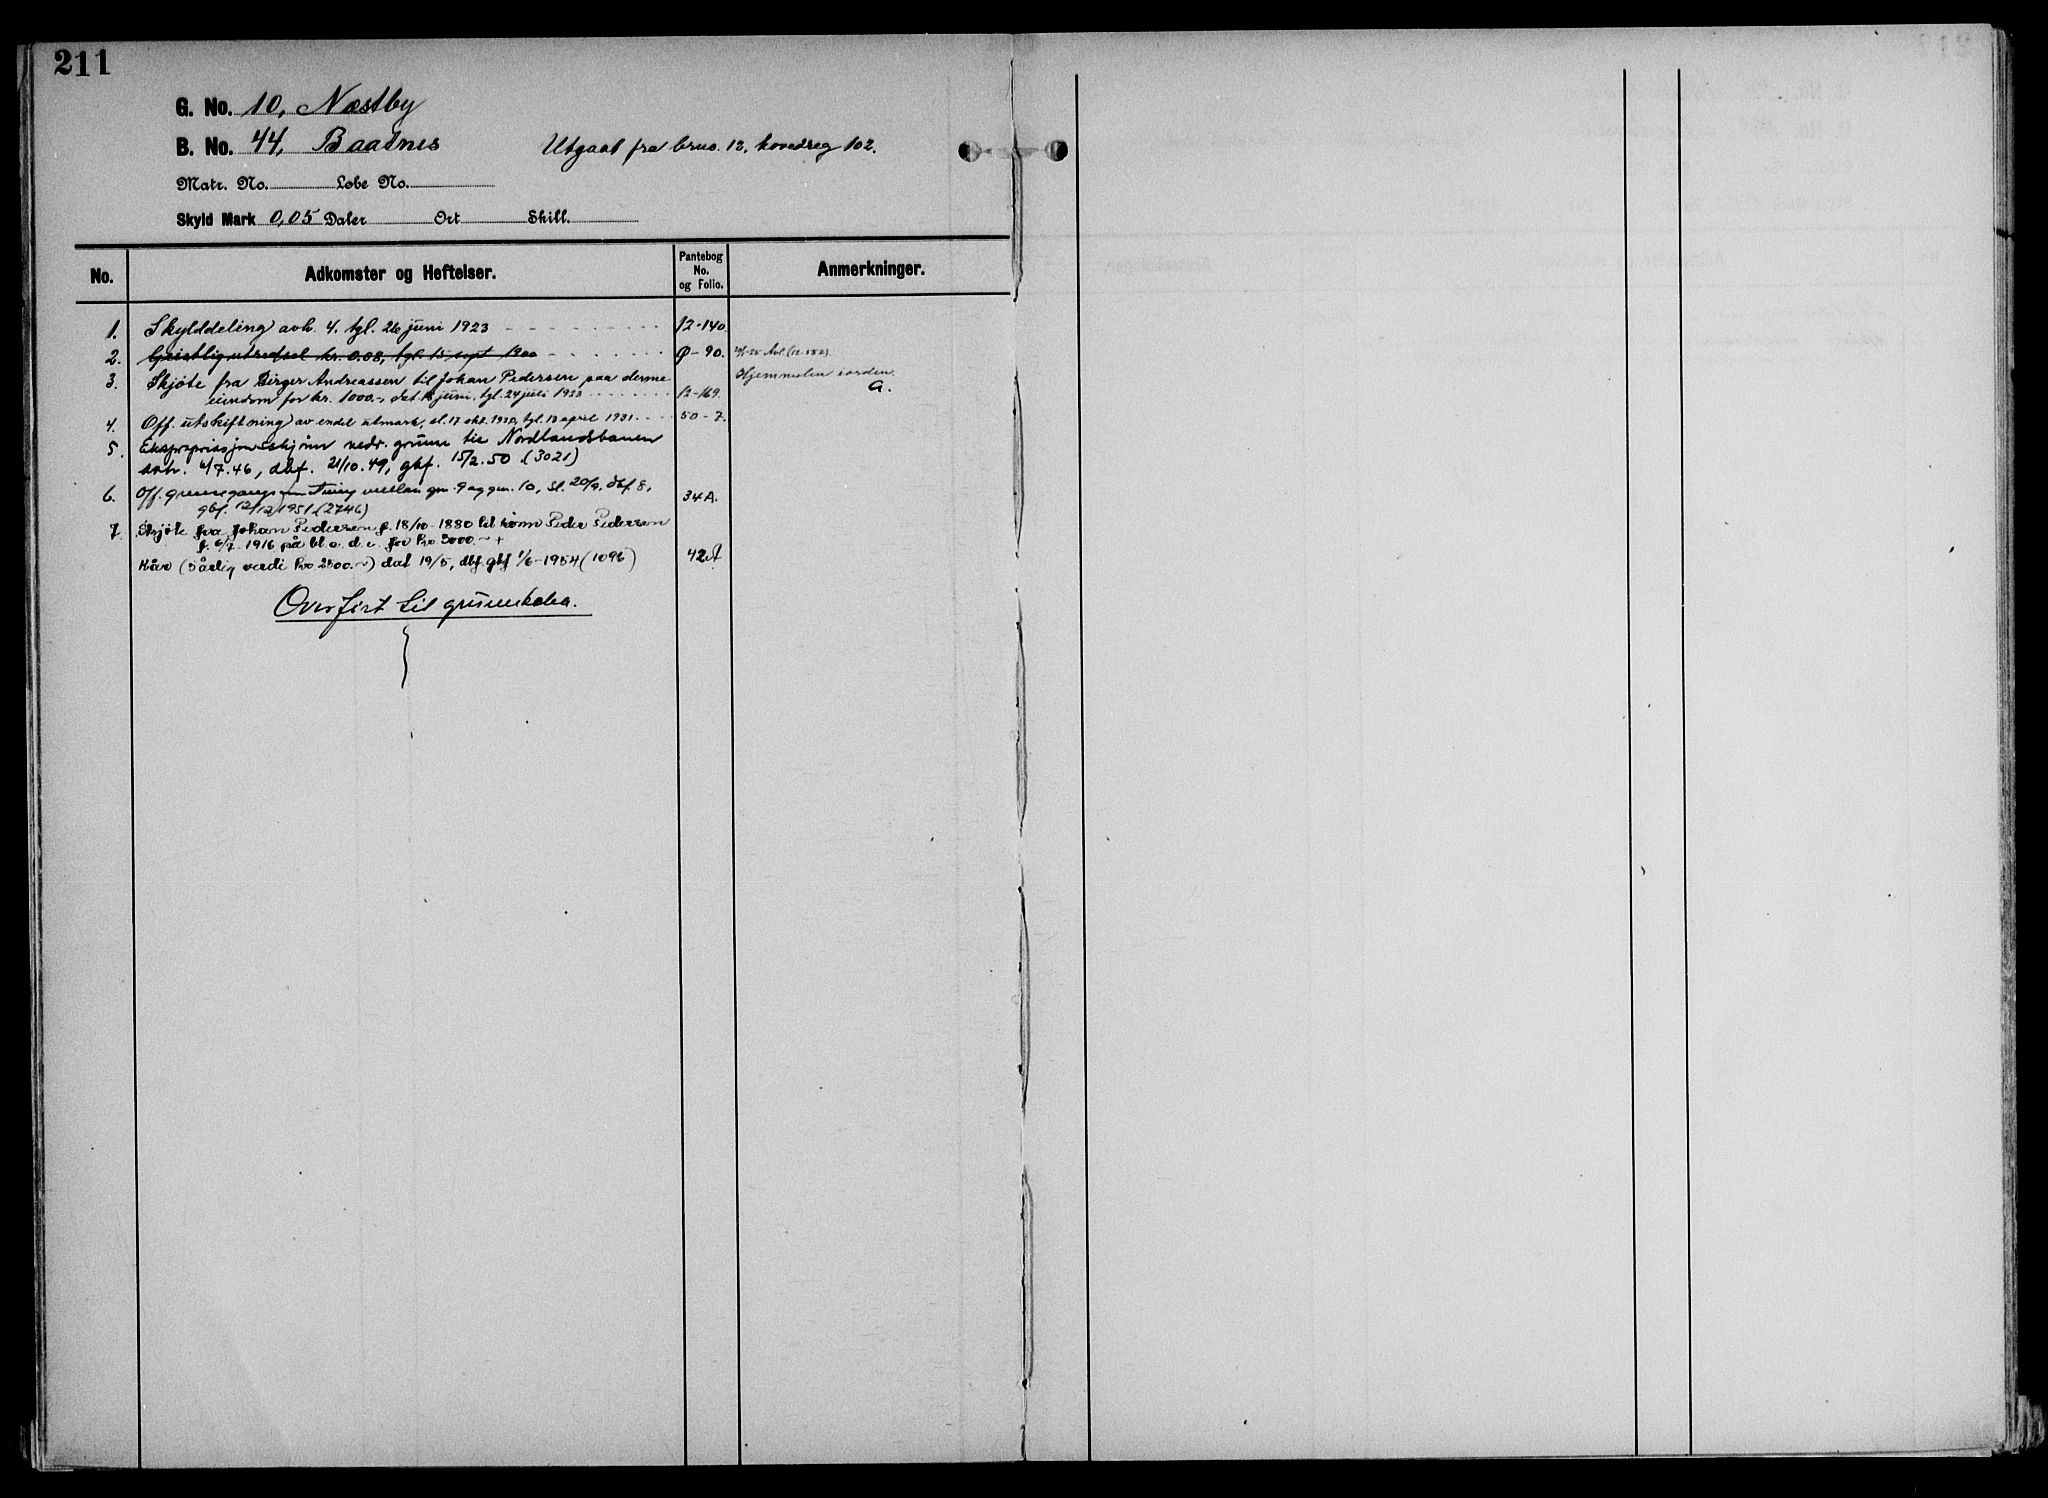 211
G. No. 10, Næstby
B. No. 44, Baatnes Utgaat fra brno. 12, hovedreg 102.
Matr. No. Løbe No.
Skyld Mark 0,05 Daler Ort Skill.
No. Adkomster og Heftelser. Pantebog No. og Folio. Anmerkninger.
1. Skylddeling avh. 4. tgl. 26 juni 1923 12-140.
2. Geistlig utredsel kr. 0.08, tgl. 15 sept 1900 Ø-90. -25 Avl. (12-182)
3. Skjøte fra Birger Andreassen til Johan Pedersen paa denne Hjemmelen iorden.
eiendom for kr. 1000.-, dat. juni, tgl. 24 juli 1923 12-169. G.
4. Off. utskiftning av endel utmark, sl. 17 okt. 1930, tgl. 13 april 1931 50-7.
5. Ekspropriasjonsskjønn vedr. grunn til Nordlandsbanen
avh. /7.46, dbf. 21/10.49, gbf. 15/2.50 (3021)
6. Off. grensegangsforretning mellan gn. 9 og gn. 10, sl. 20/9, dbf. 8, 34A.
gbf. 12/12 1951 (2746)
7. Skjøte fra Johan Pedersen f. 18/10-1880 til sønn Peder Pedersen
f. 6/7 1916 på bl. a. d. e. for kr. 3000.- +
Kår (5 årlig verdi kr. 2500.-) dat 19/5, dbf. gbf 1/6-1954 (1096) 42A
Overført til grunnboka.